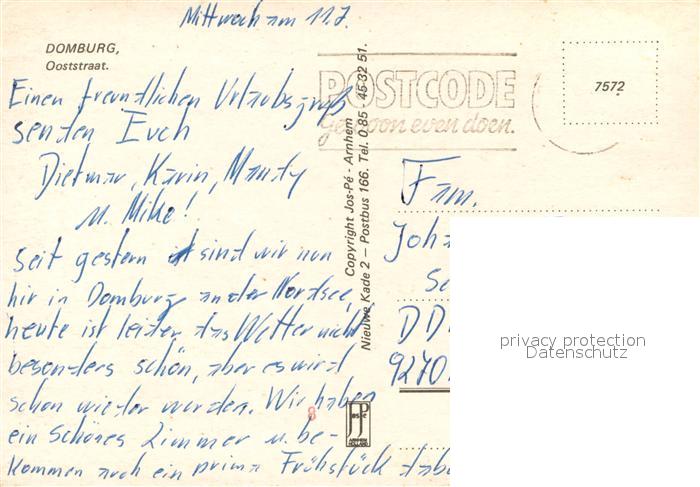 Mittwoch am 11.7.
DOMBURG,
Ooststraat.
Einen freundlichen Urlaubsgruß
senden Euch
Dietmar, Karin, Mandy
u. Mike!
Seit gestern sind wir nun
hir in Domburg an der Nordsee,
heute ist leider das Wetter nicht
besonders schön, aber es wird
schon wieder werden. Wir haben
ein schönes Zimmer u. be-
kommen auch ein prima Frühstück dabei
Copyright Jos-Pé - Arnhem
Nieuwe Kade 2 – Postbus 166. Tel. 0 85 - 45 32 51.
POSTCODE
gewoon even doen.
7572
Fam.
Joh
DD
9270
8
JosPé
ARNHEM
HOLLAND
privacy protection
Datenschutz